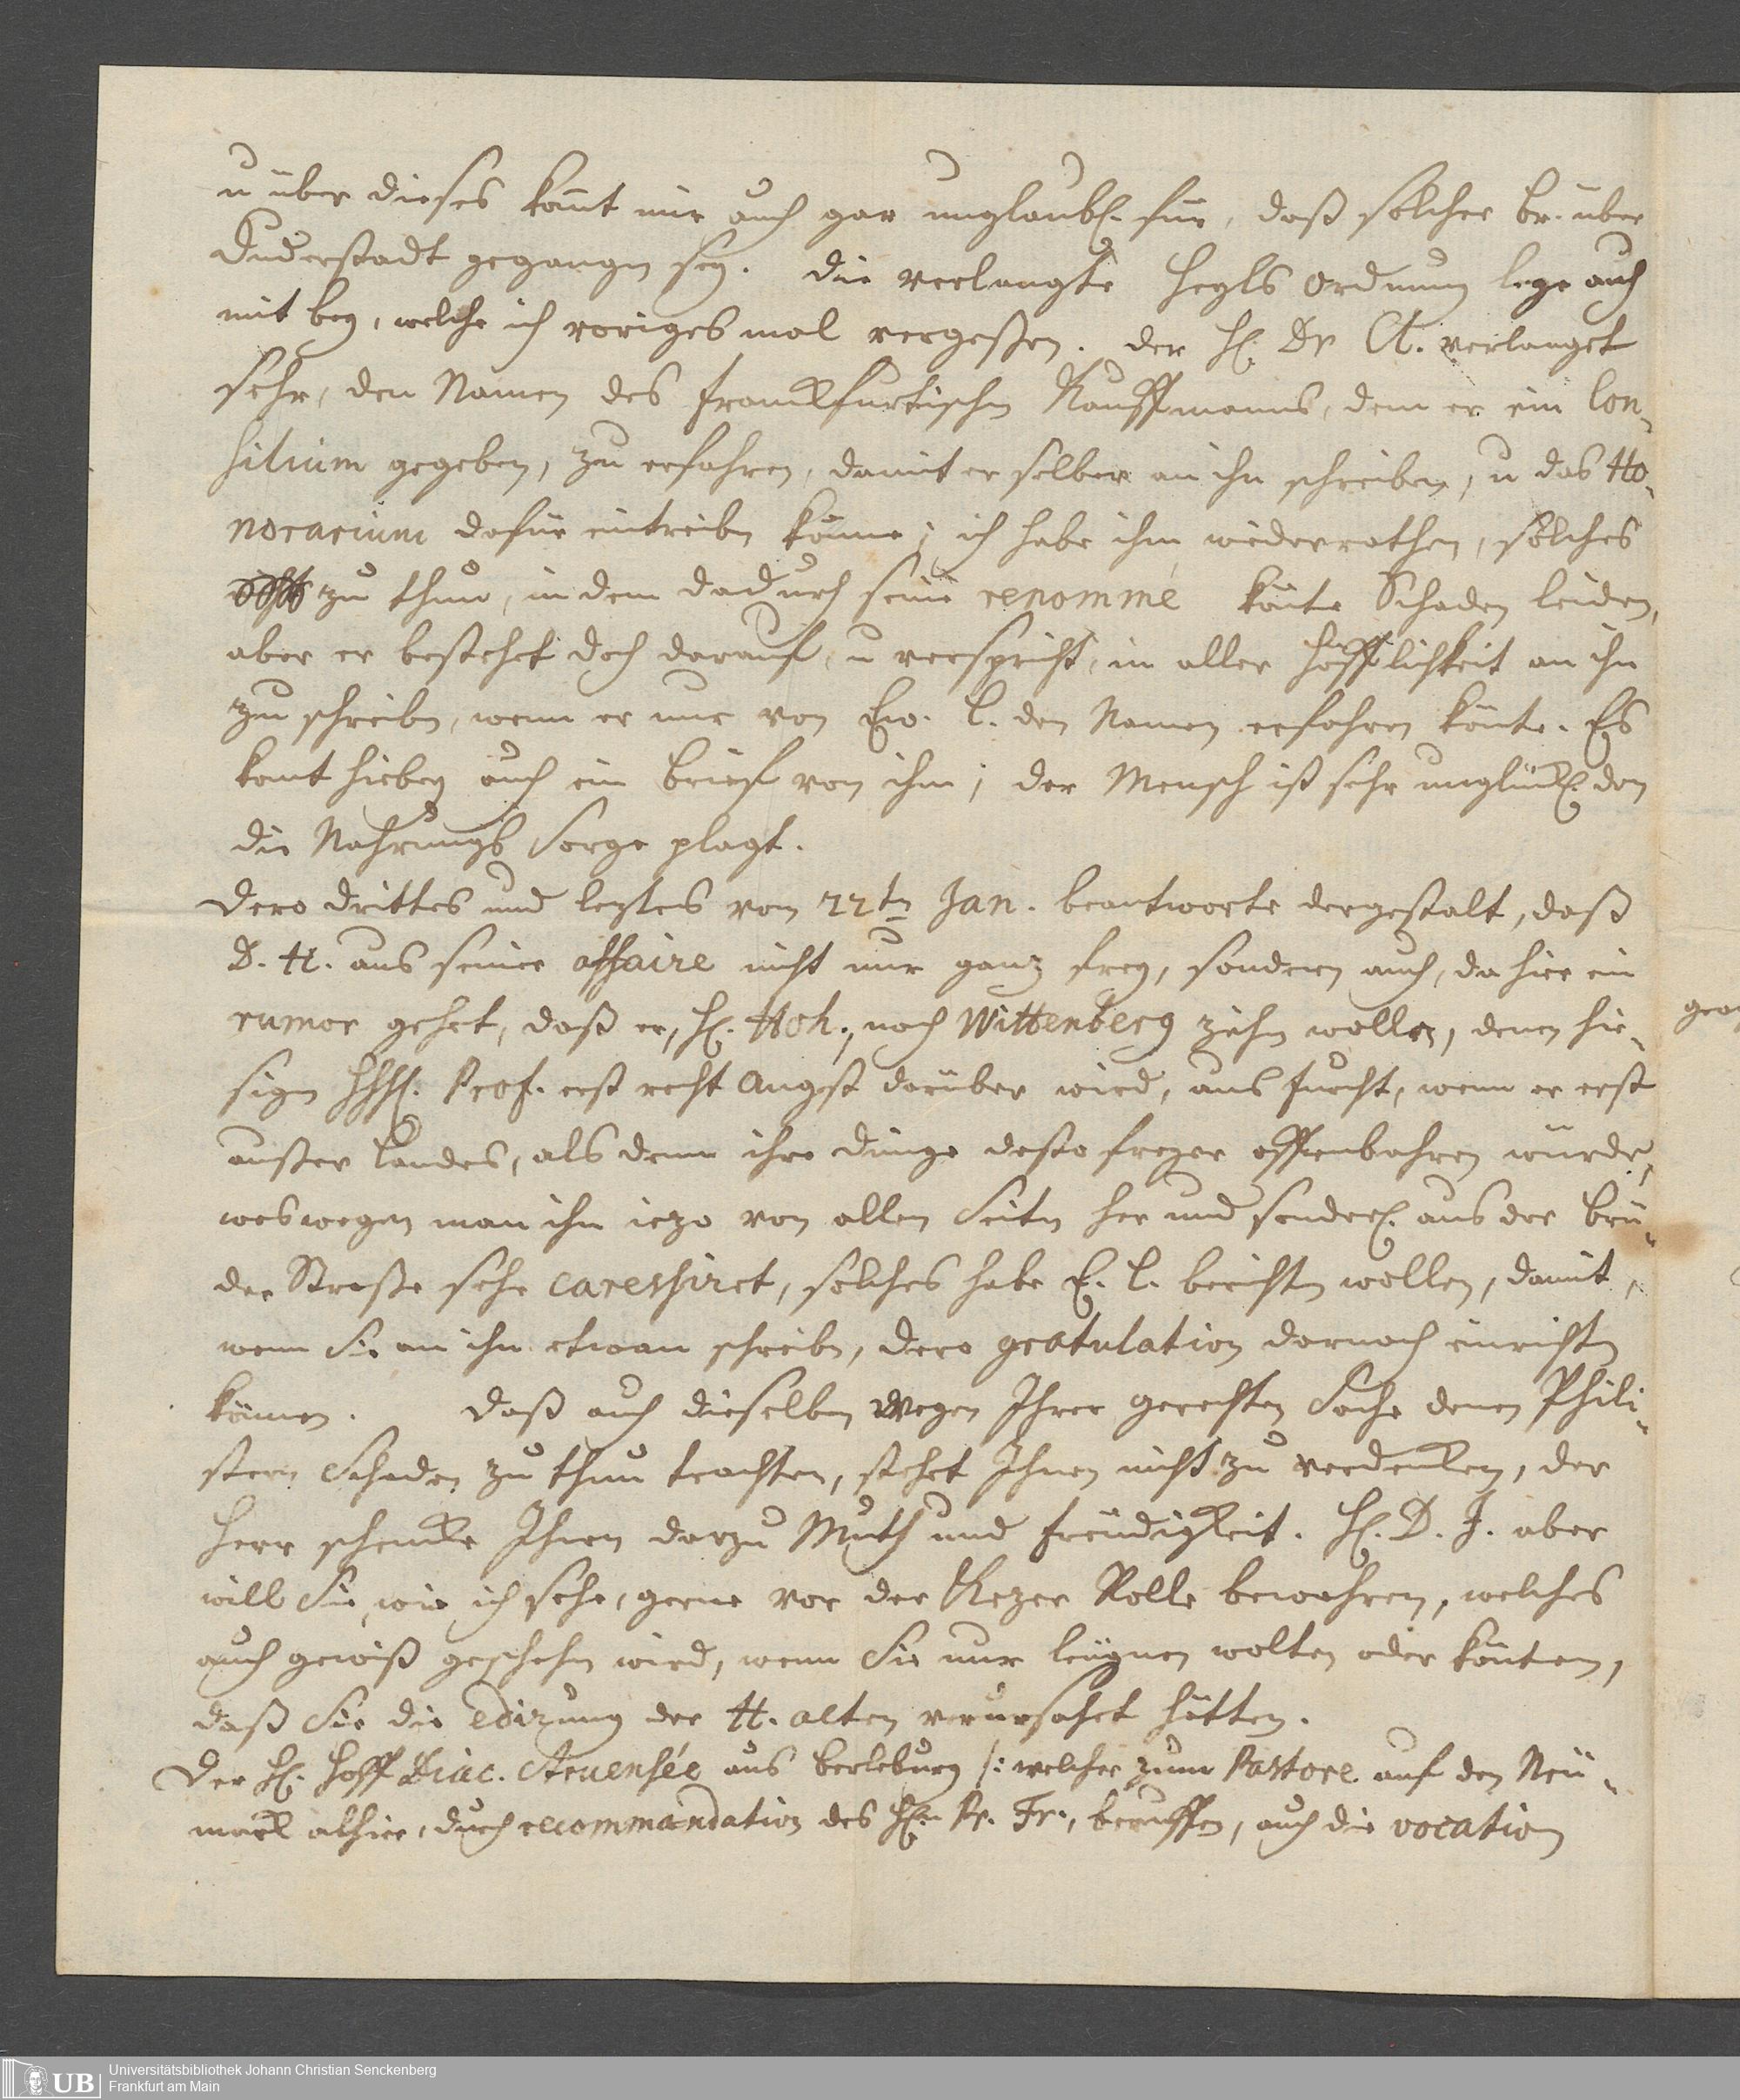 u über dieses komt mir auch gar unglaubl. für, daß solcher Br. über
Duderstadt gegangen sey. Die verlangte Heyls Ordnung lege auch
mit bey, welche ich voriges mal vergeßen. Der H. Dr A. verlanget
sehr, den Namen des Franckfurtischen Kauffmanns, dem er ein Con-
silium gegeben, zu erfahren, damit er selber an ihn schreiben, u das Ho-
norarium dafür eintreiben könne; ich habe ihm wiederrathen, solches
zu thun, in dem dadurch seine renommé könte Schaden leiden,
aber er bestehet doch darauf, u verspricht, in aller Höfflichkeit an ihn
zu schreiben, wenn er nur von Ew. L. den Namen erfahren könte. Es
komt hiebey auch ein Brief von ihm; der Mensch ist sehr unglückl. den
die Nahrungs Sorge plagt.
Dero drittes und leztes von 22tn Jan. beantworte dergestalt, daß
D. H. aus seiner affaire nicht nur ganz frey, sondern auch, da hier ein
rumor gehet, daß er, H. Hoh., nach Wittenberg ziehn wolle, denen hie-
sigen HHH. Prof. erst recht Angst darüber wird, aus Furcht, wenn er erst
außer Landes, als denn ihre Dinge desto freyer offenbahren würde,
weswegen man ihn iezo von allen Seiten her und sonderl. aus der Brü-
der Straße sehr caressiret, solches habe E. L. berichten wollen, damit,
wenn Sie an ihn etwan schreiben, dero gratulation darnach einrichten
können. Daß auch dieselben wegen Ihrer gerechten Sache denen Phili-
stern Schaden zu thun trachten, stehet Ihnen nicht zu verdencken, der
Herr schencke Ihnen darzu Muth und Freudigkeit. H. D. J. aber
will Sie, wie ich sehe, gerne vor der Kezer Rolle bewahren, welches
auch gewiß geschehen wird, wenn Sie nur leugnen wolten oder könten,
daß Sie die edirung der H. alten verursachet hätten.
Der H. Hoff Diac. Struensée aus Berleburg /: welcher zum Pastore auf den Neu-
marck alhier, durch recommandation des H.n Pr. Fr., beruffen, auch die vocation
Universitätsbibliothek Johann Christian Senckenberg
Frankfurt am Main
UB